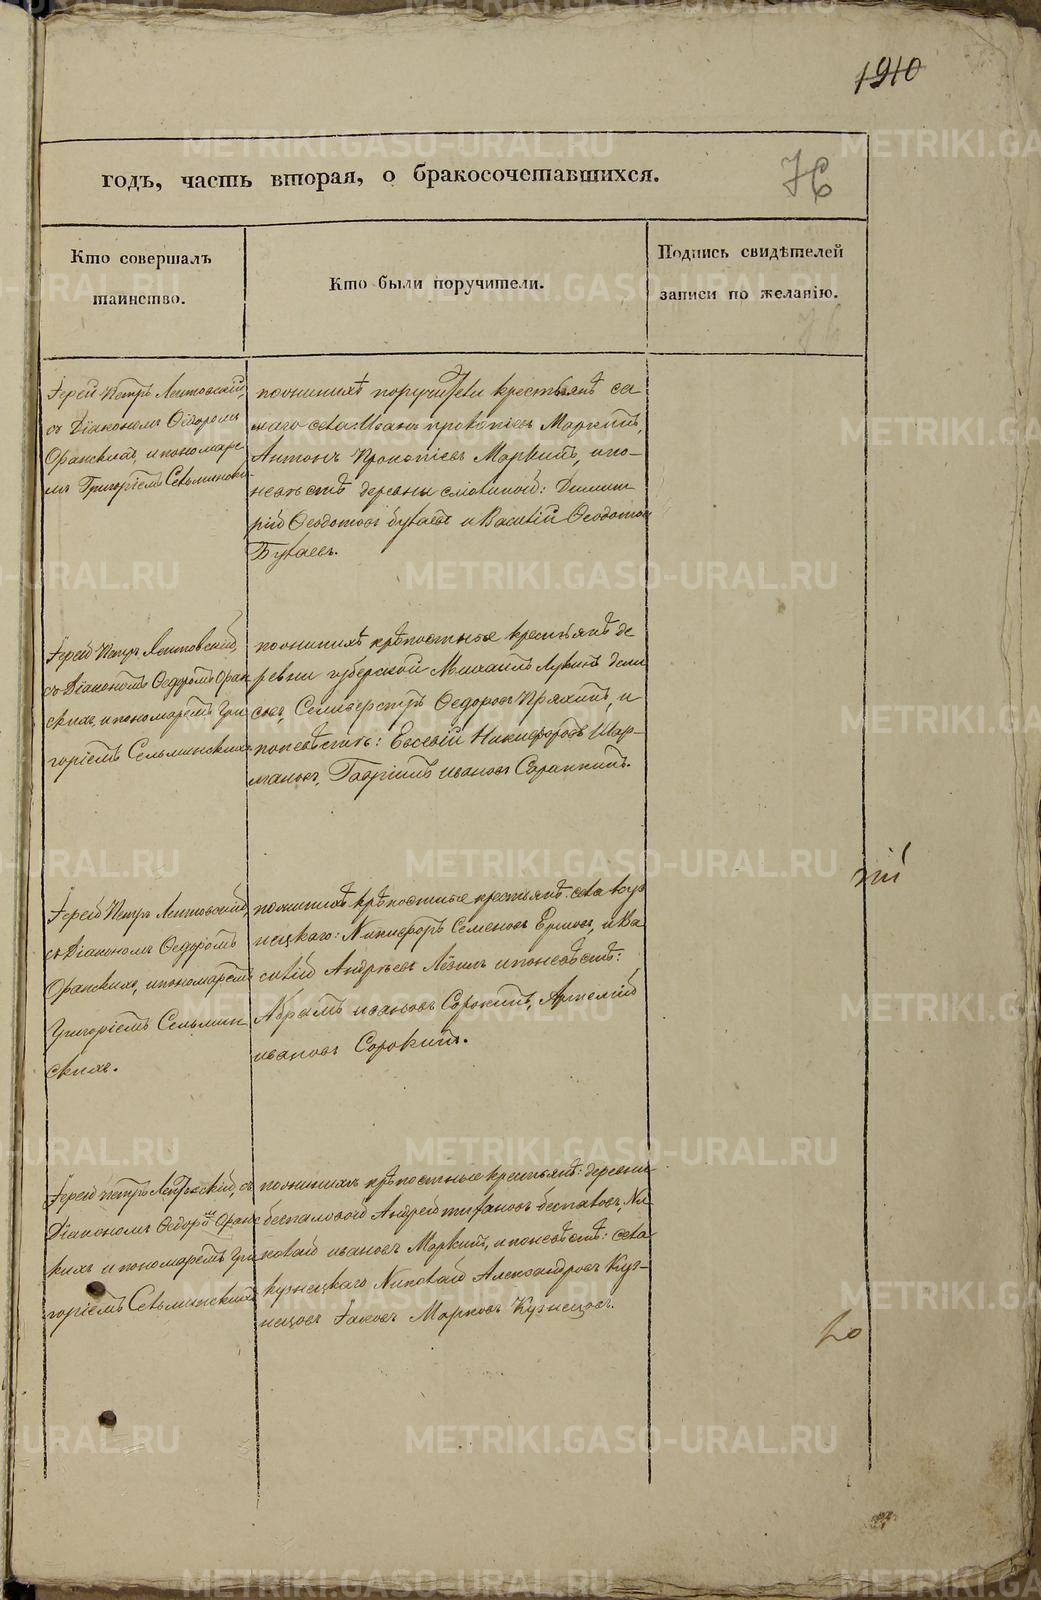 1910
годъ, часть вторая, о бракосочетавшихся.
76
Кто совершалъ
таинство.
Кто были поручители.
Подпись свидѣтелей
записи по желанію.
Іерей Петръ Лептовскій,
съ Діакономъ Ѳедоромъ
и пономаре-
мъ Григоріемъ
по женихѣ поручители крестьянѣ се-
маго села: Иванъ Прокопіевъ Маркинъ,
Антонъ Прокопіевъ Маркинъ, и по
невѣстѣ деревни Димит-
рій Ѳеодотовъ и Василій Ѳеодотов
Іерей Петръ Лептовскій,
съ Діакономъ Ѳедоромъ Оран
скихъ, и пономаремъ Гри
горіемъ Сельминскихъ
по женихѣ крѣпостные крестьянѣ де
ревни Михаилъ Лукинъ
Селиверстъ Ѳедоровъ Пряхинъ, и
по невѣстѣ: Евсевій Никифоровъ Шар-
мановъ, Гавріилъ Ивановъ
Іерей Петръ Лептовскій,
съ Діакономъ Ѳедоромъ
Оранскихъ, и пономаремъ
Григоріемъ Сельмин
скихъ.
по женихѣ крѣпостные крестьянѣ села Куз
нецкаго: Никифоръ Семеновъ Ершовъ, и Ва
силій Андреевъ и по невѣстѣ:
Абрамъ Ивановъ Сорокинъ, Артемій
Ивановъ Сорокинъ.
Іерей Петръ Лептовскій, съ
Діакономъ Ѳедоромъ Оранс
кихъ и пономаремъ Гри
горіемъ Сельминскихъ
по женихѣ крѣпостные крестьянѣ: деревни
Беспаловой Андрей Беспаловъ, Ни
колай Ивановъ Маркинъ, и по невѣстѣ: села
Кузнецкаго Николай Александровъ Куз-
нецовъ Іаковъ Марковъ Кузнецовъ.
METRIKI.GASO-URAL.RU